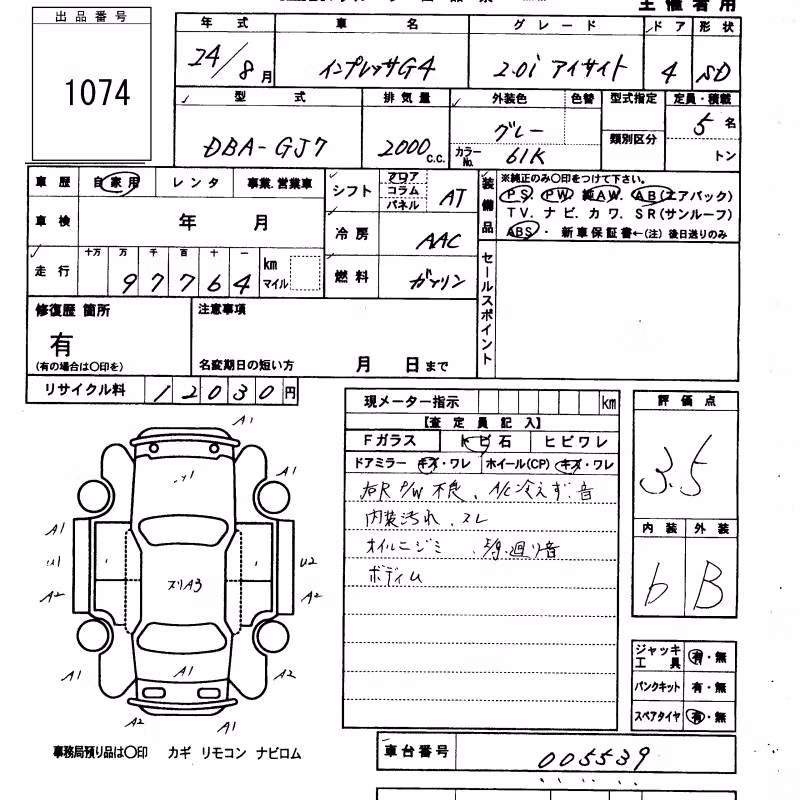 主催者用
出品番号
1074
年式 車名 グレード ドア 形状
24/8月 インプレッサG4 2.0i アイサイト 4 SD
型式 排気量 外装色 色替 型式指定 定員・積載
DBA-GJ7 2000 C.C. グレー 5名
カラーNo. 61K 類別区分 トン
車歴 自家用 レンタ 事業.営業車
車検 年 月
走行 十万 万 千 百 十 一
97764 km マイル
シフト フロア コラム パネル AT
冷房 AAC
燃料 ガソリン
装備品 ※純正のみ○印をつけて下さい。
PS. PW. 純AW. AB(エアバック)
TV. ナビ. カワ. SR(サンルーフ)
ABS ・ 新車保証書←(注) 後日送りのみ
セールスポイント
修復歴 箇所
有
(有の場合は○印を)
注意事項
名変期日の短い方 月 日まで
リサイクル料 12030円
現メーター指示 km
【査定員記入】
Fガラス トビ石 ヒビワレ
ドアミラー キズ・ワレ ホイール(CP) キズ・ワレ
右R P/W 不良、A/C冷えず.音
内装汚れ.スレ
オイルニジミ
廻り音
ボディム
評価点
3.5
内装 外装
b B
ジャッキ工具 有・無
パンクキット 有・無
スペアタイヤ 有・無
車台番号 005539
A1
A1
A1
A1
A1
U2
A2
ズリA3
A2
A1
A1
A2
A2
A1
事務局預り品は○印 カギ リモコン ナビロム